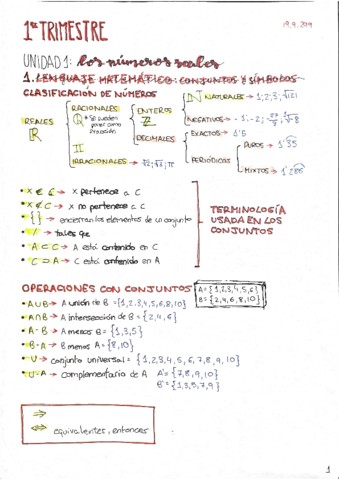 1er TRIMESTRE
19.9.2019
UNIDAD 1: los números reales
1. LENGUAJE MATEMÁTICO: CONJUNTOS Y SÍMBOLOS
CLASIFICACIÓN DE NÚMEROS
REALES ℝ
RACIONALES ℚ
* Se pueden poner como fracción
ENTEROS ℤ
ℕ NATURALES → 1; 2; 3; √121
NEGATIVOS → -1; -2;
DECIMALES
EXACTOS → 1'5
PERIÓDICOS
PUROS → 1'35
MIXTOS → 1'286
II
IRRACIONALES → √2; √2; π
• x ∈ C → x pertenece a C
• x ∉ C → x no pertenece a C
• { } → encierran los elementos de un conjunto
• / → tales que
• A ⊂ C → A está contenido en C
• C ⊃ A → C está contenido en A
TERMINOLOGÍA USADA EN LOS CONJUNTOS
OPERACIONES CON CONJUNTOS
A = {1,2,3,4,5,6}
B = {2,4,6,8,10}
• A∪B → A unión de B = {1,2,3,4,5,6,8,10}
• A∩B → A intersección de B = {2,4,6}
• A - B → A menos B = {1,3,5}
• B - A → B menos A = {8,10}
• U → conjunto universal = {1,2,3,4,5,6,7,8,9,10}
• U - A → complementario de A A' = {7,8,9,10}
B' = {1,3,5,7,9}
⇒
⇔ equivalentes, entonces
1